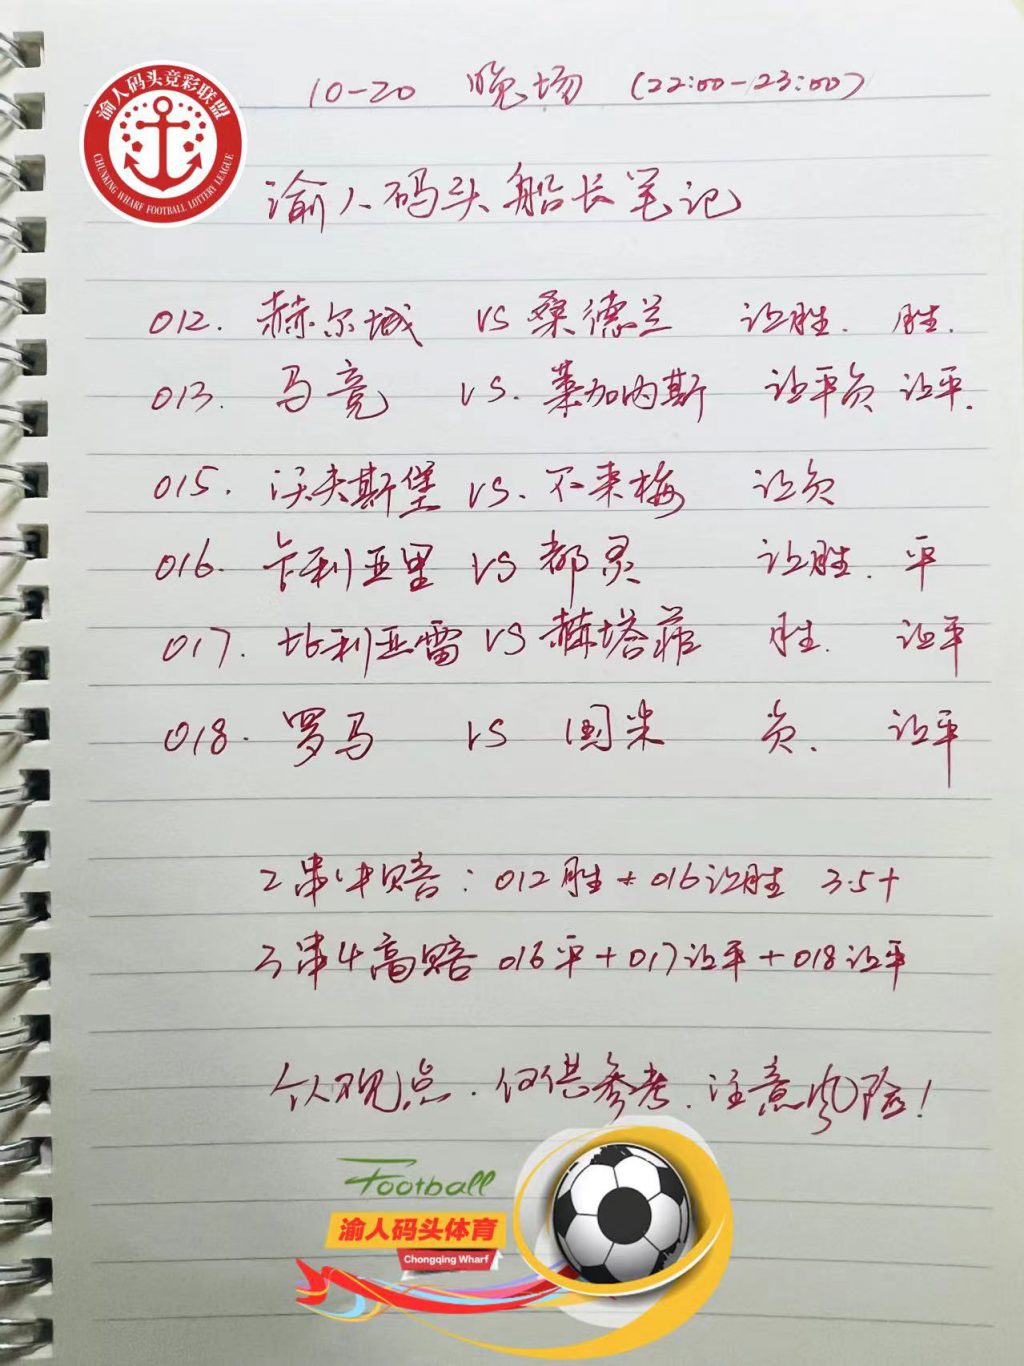 渝人码头竞彩联盟
CHUNKING WHARF FOOTBALL LOTTERY LEAGUE
10-20 晚场 (22:00-23:00)
渝人码头船长笔记
012. 赫尔城 VS 桑德兰 让胜. 胜.
013. 马竞 VS. 莱加内斯 让平负 让平.
015. 沃夫斯堡 VS. 不来梅 让负
016. 卡利亚里 VS 都灵 让胜. 平
017. 比利亚雷 VS 赫塔菲 胜. 让平
018. 罗马 VS 国米 负. 让平
2串1中赔: 012胜+016让胜 3.5+
3串4高赔 016平+017让平+018让平
个人观点. 仅供参考. 注意风险!
Football
渝人码头体育
Chongqing Wharf